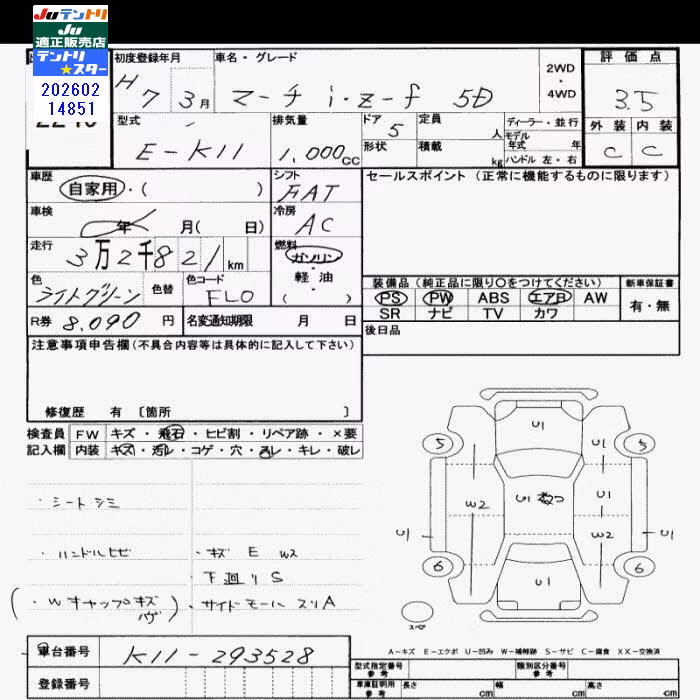 JUテントリ
JU
適正販売店
テントリ
★スター
202602
14851
初度登録年月
H 7年 3月
車名・グレード
マーチ i・z-f 5D
2WD
・
4WD
評価点
3.5
外装 内装
C C
型式
E-K11
排気量
1,000cc
ドア
5
形状
定員
人
積載
kg
ディーラー・並行
モデル
年式 年
ハンドル 左・右
車歴
自家用・( )
シフト
FAT
セールスポイント(正常に機能するものに限ります)
車検
年 月( 日)
冷房
AC
走行
3万2千821km
燃料
ガソリン・
軽油
( )
色
ライトグリーン
色替
色コード
FL0
装備品(純正品に限り○をつけてください)
PS PW ABS エアB AW
SR ナビ TV カワ
新車保証書
有・無
R券 8,090 円
名変通知期限 月 日
後日品
注意事項申告欄(不具合内容等は具体的に記入して下さい)
修復歴 有 〔箇所 〕
検査員 FW キズ・飛石・ヒビ割・リペア跡・×要
記入欄 内装 キズ・汚レ・コゲ・穴・スレ・キレ・破レ
・シートシミ
・ハンドルヒビ
・キズ E W2
下廻り S
(・Wキャップキズ)
・サイドモールスリA
U1
5
U1
5
W2
U1
U1
U1
W2
U1
6
U1
6
スペア
A-キズ E-エクボ U-凹み W-補修跡 S-サビ C-腐食 XX-交換済
車台番号 K11-293528
登録番号
型式指定番号
参考
類別区分番号
参考
車庫証明用
参考
長さ cm 幅 cm 高さ cm